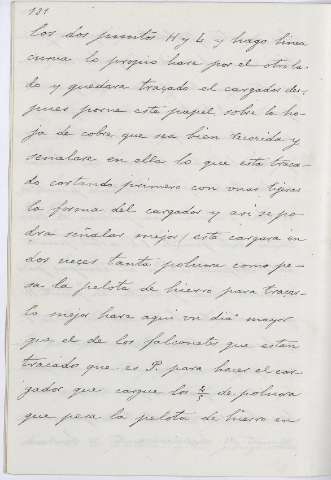 121
los dos puntos H y L y hago linea
curua lo propio hare por el otro la-
do y quedara traçado el cargador des-
pues porne este papel sobre la ho-
ja de cobre que sea bien recorida y
señalare en ella lo que esta traca-
do cortando primero con unas tigeras
la forma del cargador y asi se po-
dra señalar mejor / esta cargara en
dos ueces tanta poluora como pe-
sa la pelota de hierro para traçar-
lo mejor hare aqui vn dia mayor
que el de los falconetes que estan
traçado que es P. para hacer el car-
gador que cargue los 4/5 de poluora
que pesa la pelota de hierro en